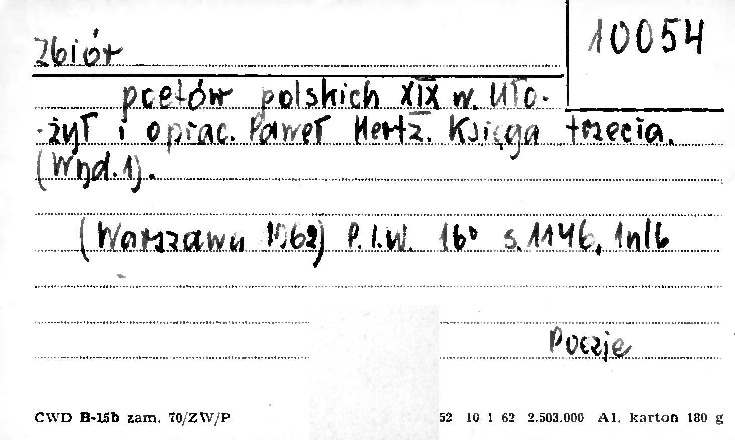 10054
Zbiór
poetów polskich XIX w. Uło-
-żył i oprac. Paweł Hertz. Księga trzecia.
(Wyd. 1).
(Warszawa 1962) P.I.W. 16° s. 1146, 1nlb
Poezje
CWD B-15b zam. 70/ZW/P 52 10 1 62 2.503.000 A1. karton 180 g